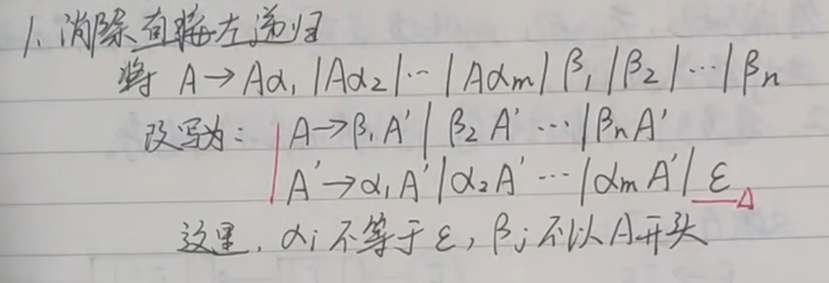 1. 消除直接左递归
将 A→Aα₁|Aα₂|…|Aαm|β₁|β₂|…|βn
改写为: A→β₁A'|β₂A'…|βnA'
A'→α₁A'|α₂A'…|αmA'|ε
这里, αi不等于ε, βj不以A开头